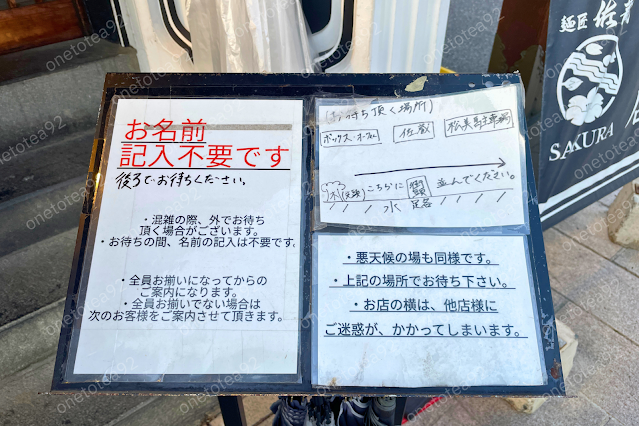 お名前
記入不要です
後ろでお待ちください。
・混雑の際、外でお待ち
頂く場合がございます。
・お待ちの間、名前の記入は不要です。
・全員お揃いになってからの
ご案内になります。
・全員お揃いでない場合は
次のお客様をご案内させて頂きます。
(お待ち頂く場所)
佐蔵
こちらに
並んでください。
・悪天候の場も同様です。
・上記の場所でお待ち下さい。
・お店の横は、他店様に
ご迷惑が、かかってしまいます。
麺匠 佐蔵
SAKURA
onetotea92